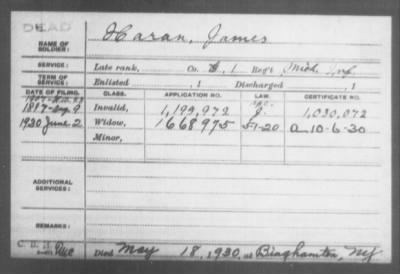 DEAD
Haran, James
NAME OF SOLDIER:
SERVICE: Late rank, Co. 1 Reg't Mich. Inf.
TERM OF SERVICE: Enlisted , 1 Discharged , 1
DATE OF FILING. CLASS. APPLICATION NO. LAW. CERTIFICATE NO.
Invalid, 1,199,972 1,030,072
1930 June 2 Widow, 1668975 5-1-20 a 10-6-30
Minor,
ADDITIONAL SERVICES:
REMARKS:
Died May 18, 1930, at Binghamton, NY